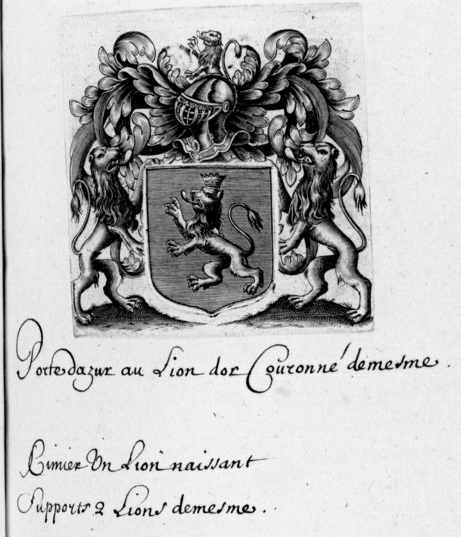 Porte dazur au Lion dor Couronné demesme.
Cimier Un Lion naissant
Supports 2 Lions demesme.